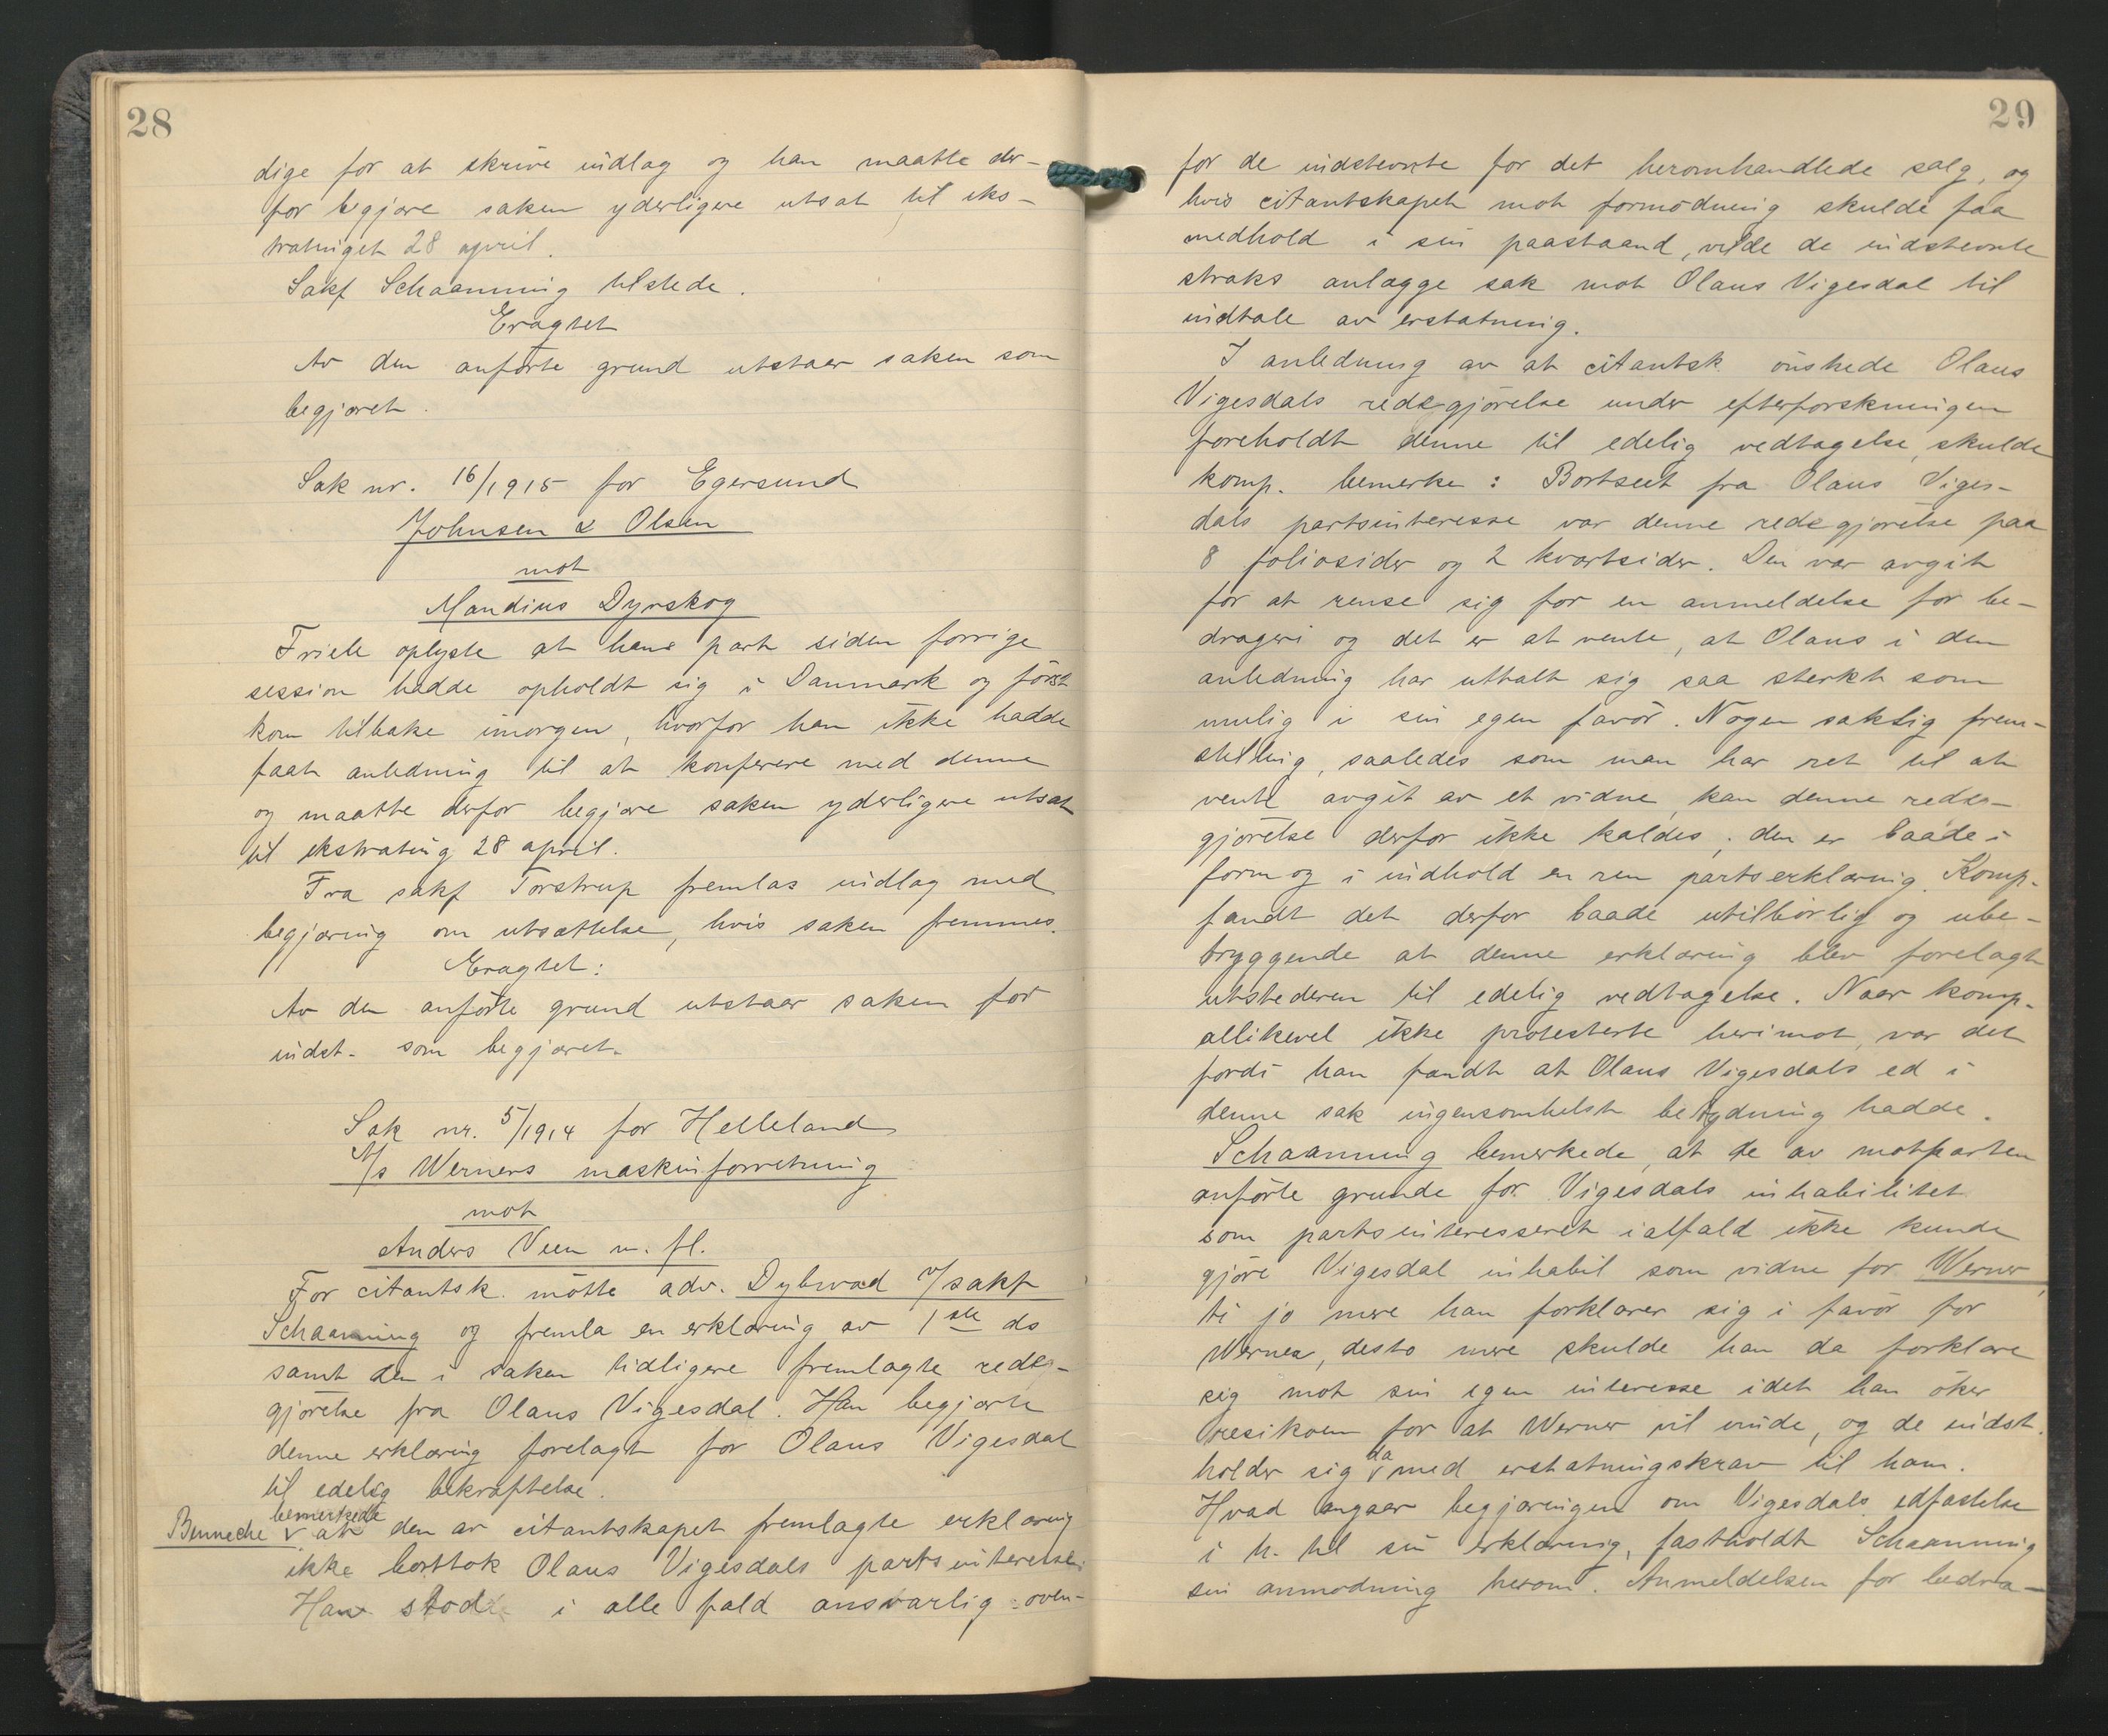 28
dige for at skrive indlæg og han maatte der-
for begjære saken yderligere utsat til eks-
tratinget 28 april.
Sakf Schaanning tilstede.
Eragtet
Av den anførte grund utstaar saken som
begjæret.
Sak nr. 16/1915 for Egersund
Johnsen & Olsen
mot
Mandius Dyrskog
Friele oplyste at hans part siden forrige
session hadde opholdt sig i Danmark og først
kom tilbake imorgen, hvorfor han ikke hadde
faat anledning til at konferere med denne
og maatte derfor begjære saken yderligere utsat
til ekstrating 28 april.
Fra sakf Torstrup fremlas indlæg med
begjæring om utsættelse, hvis saken fremmes.
Eragtet:
Av den anførte grund utstaar saken for
indst. som begjæret.
Sak nr. 5/1914 for Helleland
A/s Werners maskinforretning
mot
Anders Veen m. fl.
For citantsk. møtte adv. Dybwad v/sakf
Schaanning og fremla en erklæring av 1ste ds
samt den i saken tidligere fremlagte rede-
gjørelse fra Olaus Vigesdal. Han begjærte
denne erklæring forelagt for Olaus Vigesdal
til edelig bekræftelse.
Benneche bemerkede at den av citantskapet fremlagte erklæring
ikke borttok Olaus Vigesdals partsinteresse.
Han stod i alle fald ansvarlig oven-
29
for de indstevnte for det heromhandlede salg, og
hvis citantskapet mot formodning skulde faa
medhold i sin paastaand, vilde de indstevnte
straks anlægge sak mot Olaus Vigesdal til
indtale av erstatning.
I anledning av at citantsk. ønskede Olaus
Vigesdals redegjørelse under efterforskningen
foreholdt denne til edelig vedtagelse, skulde
komp. bemerke: Bortseet fra Olaus Viges-
dals partsinteresse var denne redegjørelse paa
8 foliosider og 2 kvartsider. Den var avgit
for at rense sig for en anmeldelse for be-
drageri og det er at vente, at Olaus i den
anledning har uttalt sig saa sterkt som
mulig i sin egen favør. Nogen saklig frem-
stilling, saaledes som man har ret til at
vente avgit av et vidne, kan denne rede-
gjørelse derfor ikke kaldes; den er baade i
form og i indhold en ren partserklæring. Komp.
fandt det derfor baade utilbørlig og ube-
tryggende at denne erklæring blev forelagt
utstederen til edelig vedtagelse. Naar komp.
allikevel ikke protesterte herimot, var det
fordi han fandt at Olaus Vigesdals ed i
denne sak ingensomhelst betydning hadde.
Schaanning bemerkede, at de av motparten
anførte grunde for Vigesdals inhabilitet
som partsinteresseret ialfald ikke kunde
gjøre Vigesdal inhabil som vidne for Werner,
ti jo mere han forklarer sig i favør for
Werner, desto mere skulde han da forklare
sig mot sin egen interesse idet han øker
resikoen for at Werner vil vinde, og de indst.
holder sig da med erstatningskrav til ham.
Hvad angaar begjæringen om Vigesdals edfæstelse
i h. til sin erklæring, fastholdt Schaanning
sin anmodning herom. Anmeldelsen for bedra-